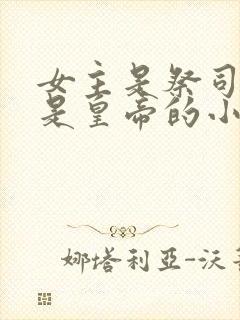 女主是祭司
是皇帝的小
娜塔利亞-沃